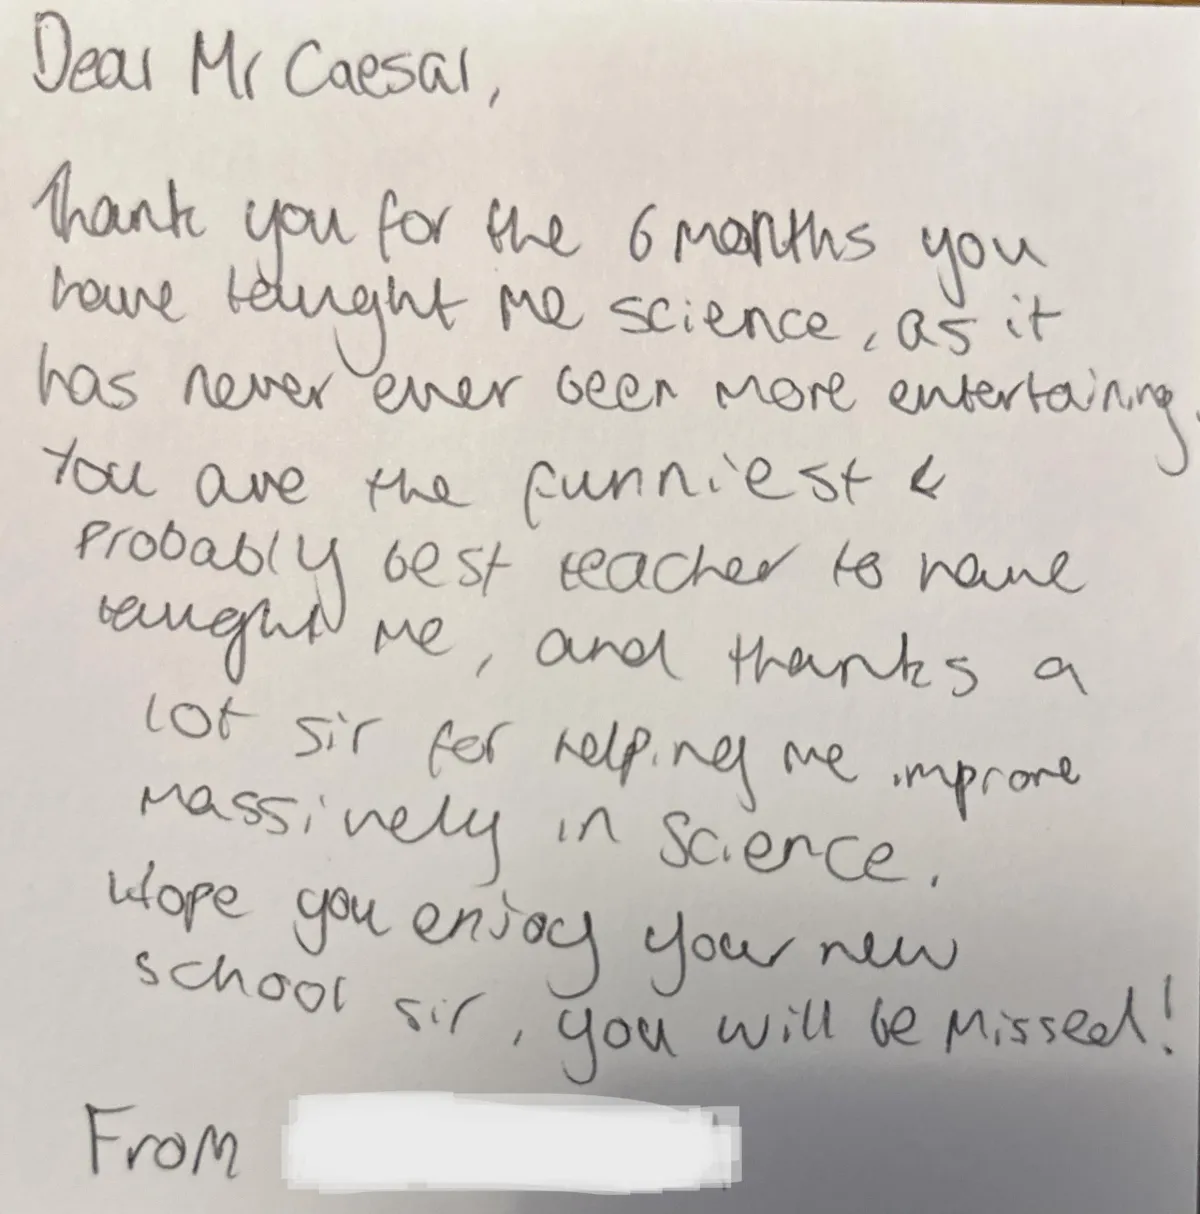 Dear Mr Caesar,
Thank you for the 6 months you
have taught me science, as it
has never ever been more entertaining.
You are the funniest &
probably best teacher to have
taught me, and thanks a
lot sir for helping me improve
massively in science.
Hope you enjoy your new
school sir, you will be missed!
From